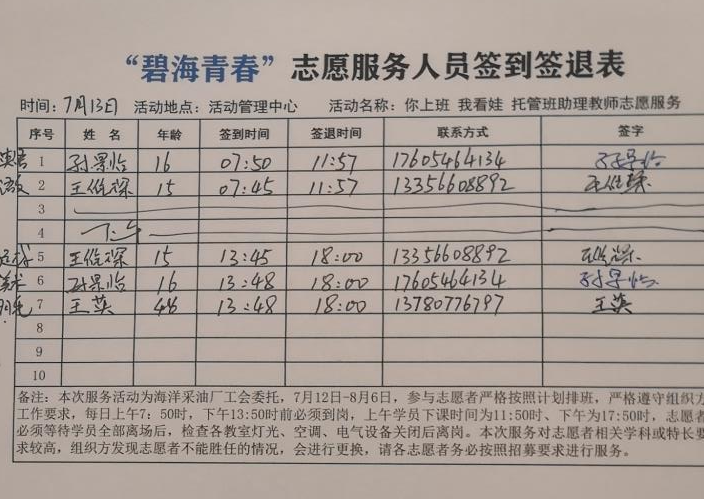 “碧海青春”志愿服务人员签到签退表
时间：7月13日 活动地点：活动管理中心 活动名称：你上班 我看娃 托管班助理教师志愿服务
序号 姓 名 年龄 签到时间 签退时间 联系方式 签字
1 孙景怡 16 07:50 11:57 17605464134 孙景怡
2 王俊琛 15 07:45 11:57 13356608892 王俊琛
3
4 下午
5 王俊琛 15 13:45 18:00 13356608892 王俊琛
6 孙景怡 16 13:48 18:00 17605464134 孙景怡
7 王英 44 13:48 18:00 13780776797 王英
8
9
10
备注：本次服务活动为海洋采油厂工会委托，7月12日-8月6日，参与志愿者严格按照计划排班，严格遵守组织方
工作要求，每日上午7：50时，下午13:50时前必须到岗，上午学员下课时间为11:50时、下午为17:50时，志愿者
必须等待学员全部离场后，检查各教室灯光、空调、电气设备关闭后离岗。本次服务对志愿者相关学科或特长要
求较高，组织方发现志愿者不能胜任的情况，会进行更换，请各志愿者务必按照招募要求进行服务。